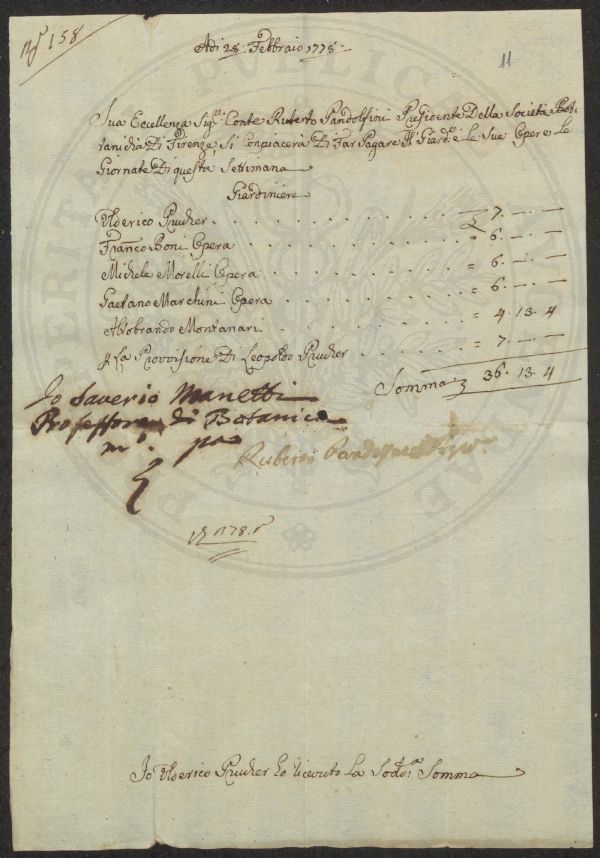 N° 158
Adi 28. Febbraio 1778
11
Sua Eccellenza Sig.re Conte Ruberto Pandolfini Presidente Della Società Bot-
tanicha Di Firenze, Si Conpiacerà Di Far Pagare Al Giard.e e le Sue Opere Le
Giornate Di questa Settimana
Giardiniere
Ulderico Prucher . . . . . . . . . . £ 7. — —
Franco Boni Opera . . . . . . . . . . = 6. — —
Michele Morelli Opera . . . . . . . . . . = 6. — —
Gaetano Marchini Opera . . . . . . . . . . = 6. — —
Aldobrando Montanari . . . . . . . . . . = 4. 13. 4
P. La Provisione Di Leopoldo Prucher . . . . . = 7. — —
Somma £ 36. 13. 4
Io Saverio Manetti
Professore di Botanica
m.o pa
Ruberto Pandolfini
178
Io Ulderico Prucher ho ricevuto La Sod.a Somma